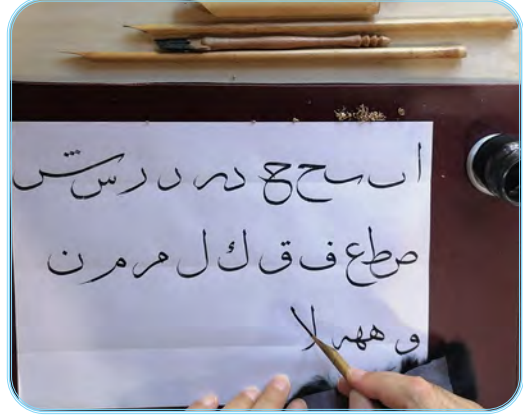 ا ب ح ح د ر ر س ش
ص ط ع ف ق ك ل م م ن
و ههه لا